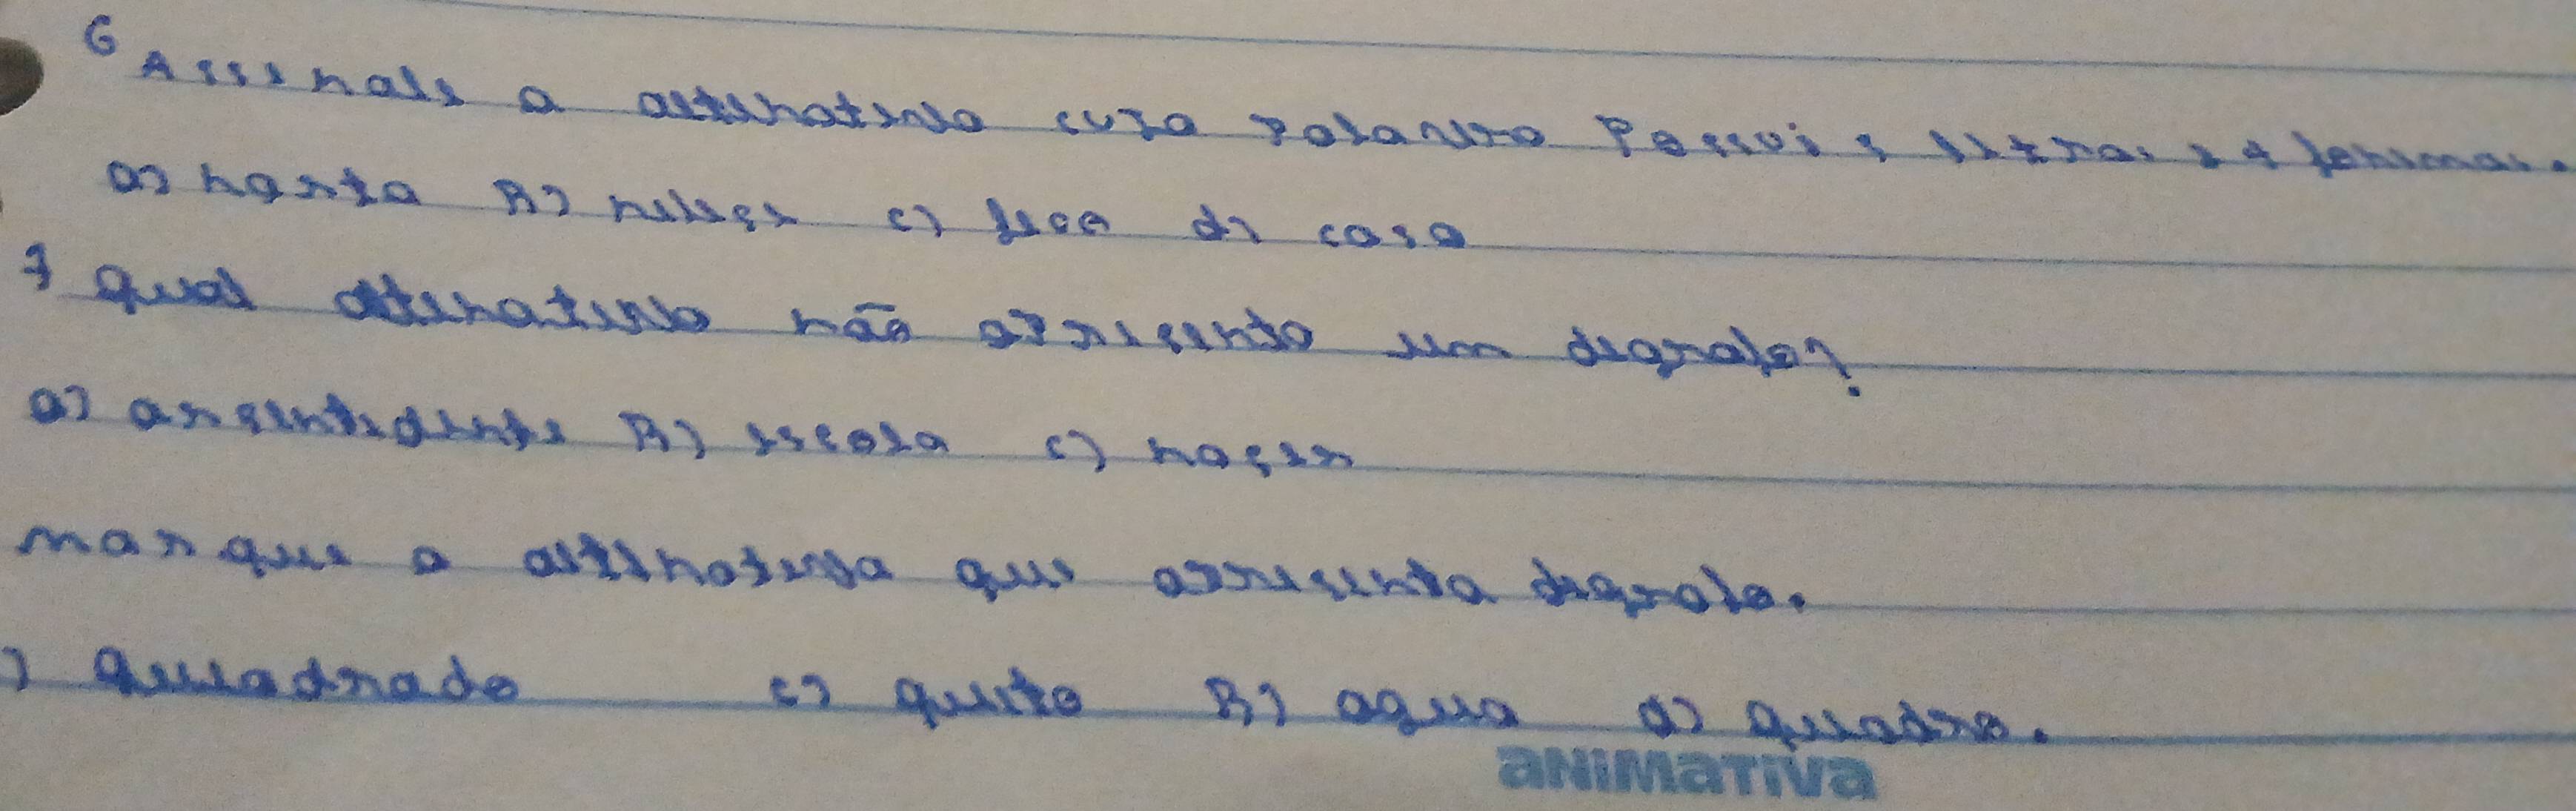 6 Assinale a alternativa cuja palavra Possui 5 letras e 4 fonemas.
a) 
B) c) d) casa
7 Qual alternativa não apresenta um digrafo?
a) B) escola c) 
marque a alternativa que apresenta digrafo.
) quuadrado c) quito B) agua d) quadro.
aNiMaTiVa